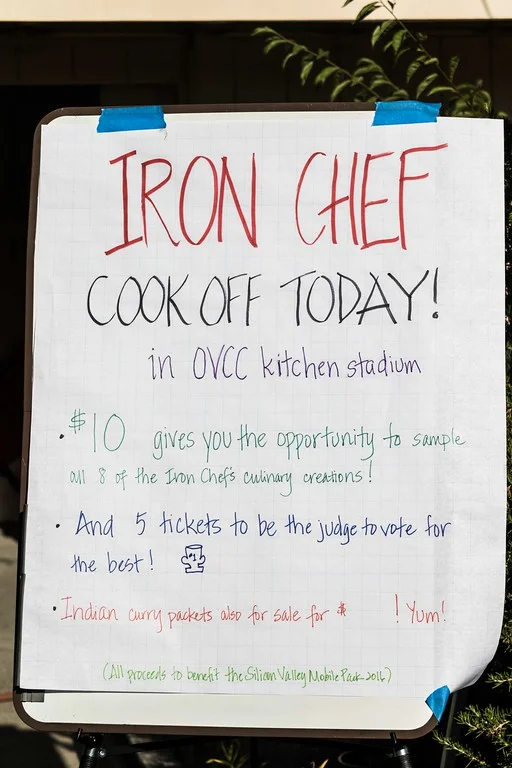 IRON CHEF
COOK OFF TODAY!
in OVCC kitchen stadium
• $10 gives you the opportunity to sample
all 8 of the Iron Chefs culinary creations!
• And 5 tickets to be the judge to vote for
the best! #1
• Indian curry packets also for sale for $ ! Yum!
(All proceeds to benefit the Silicon Valley Mobile Pack 2016)